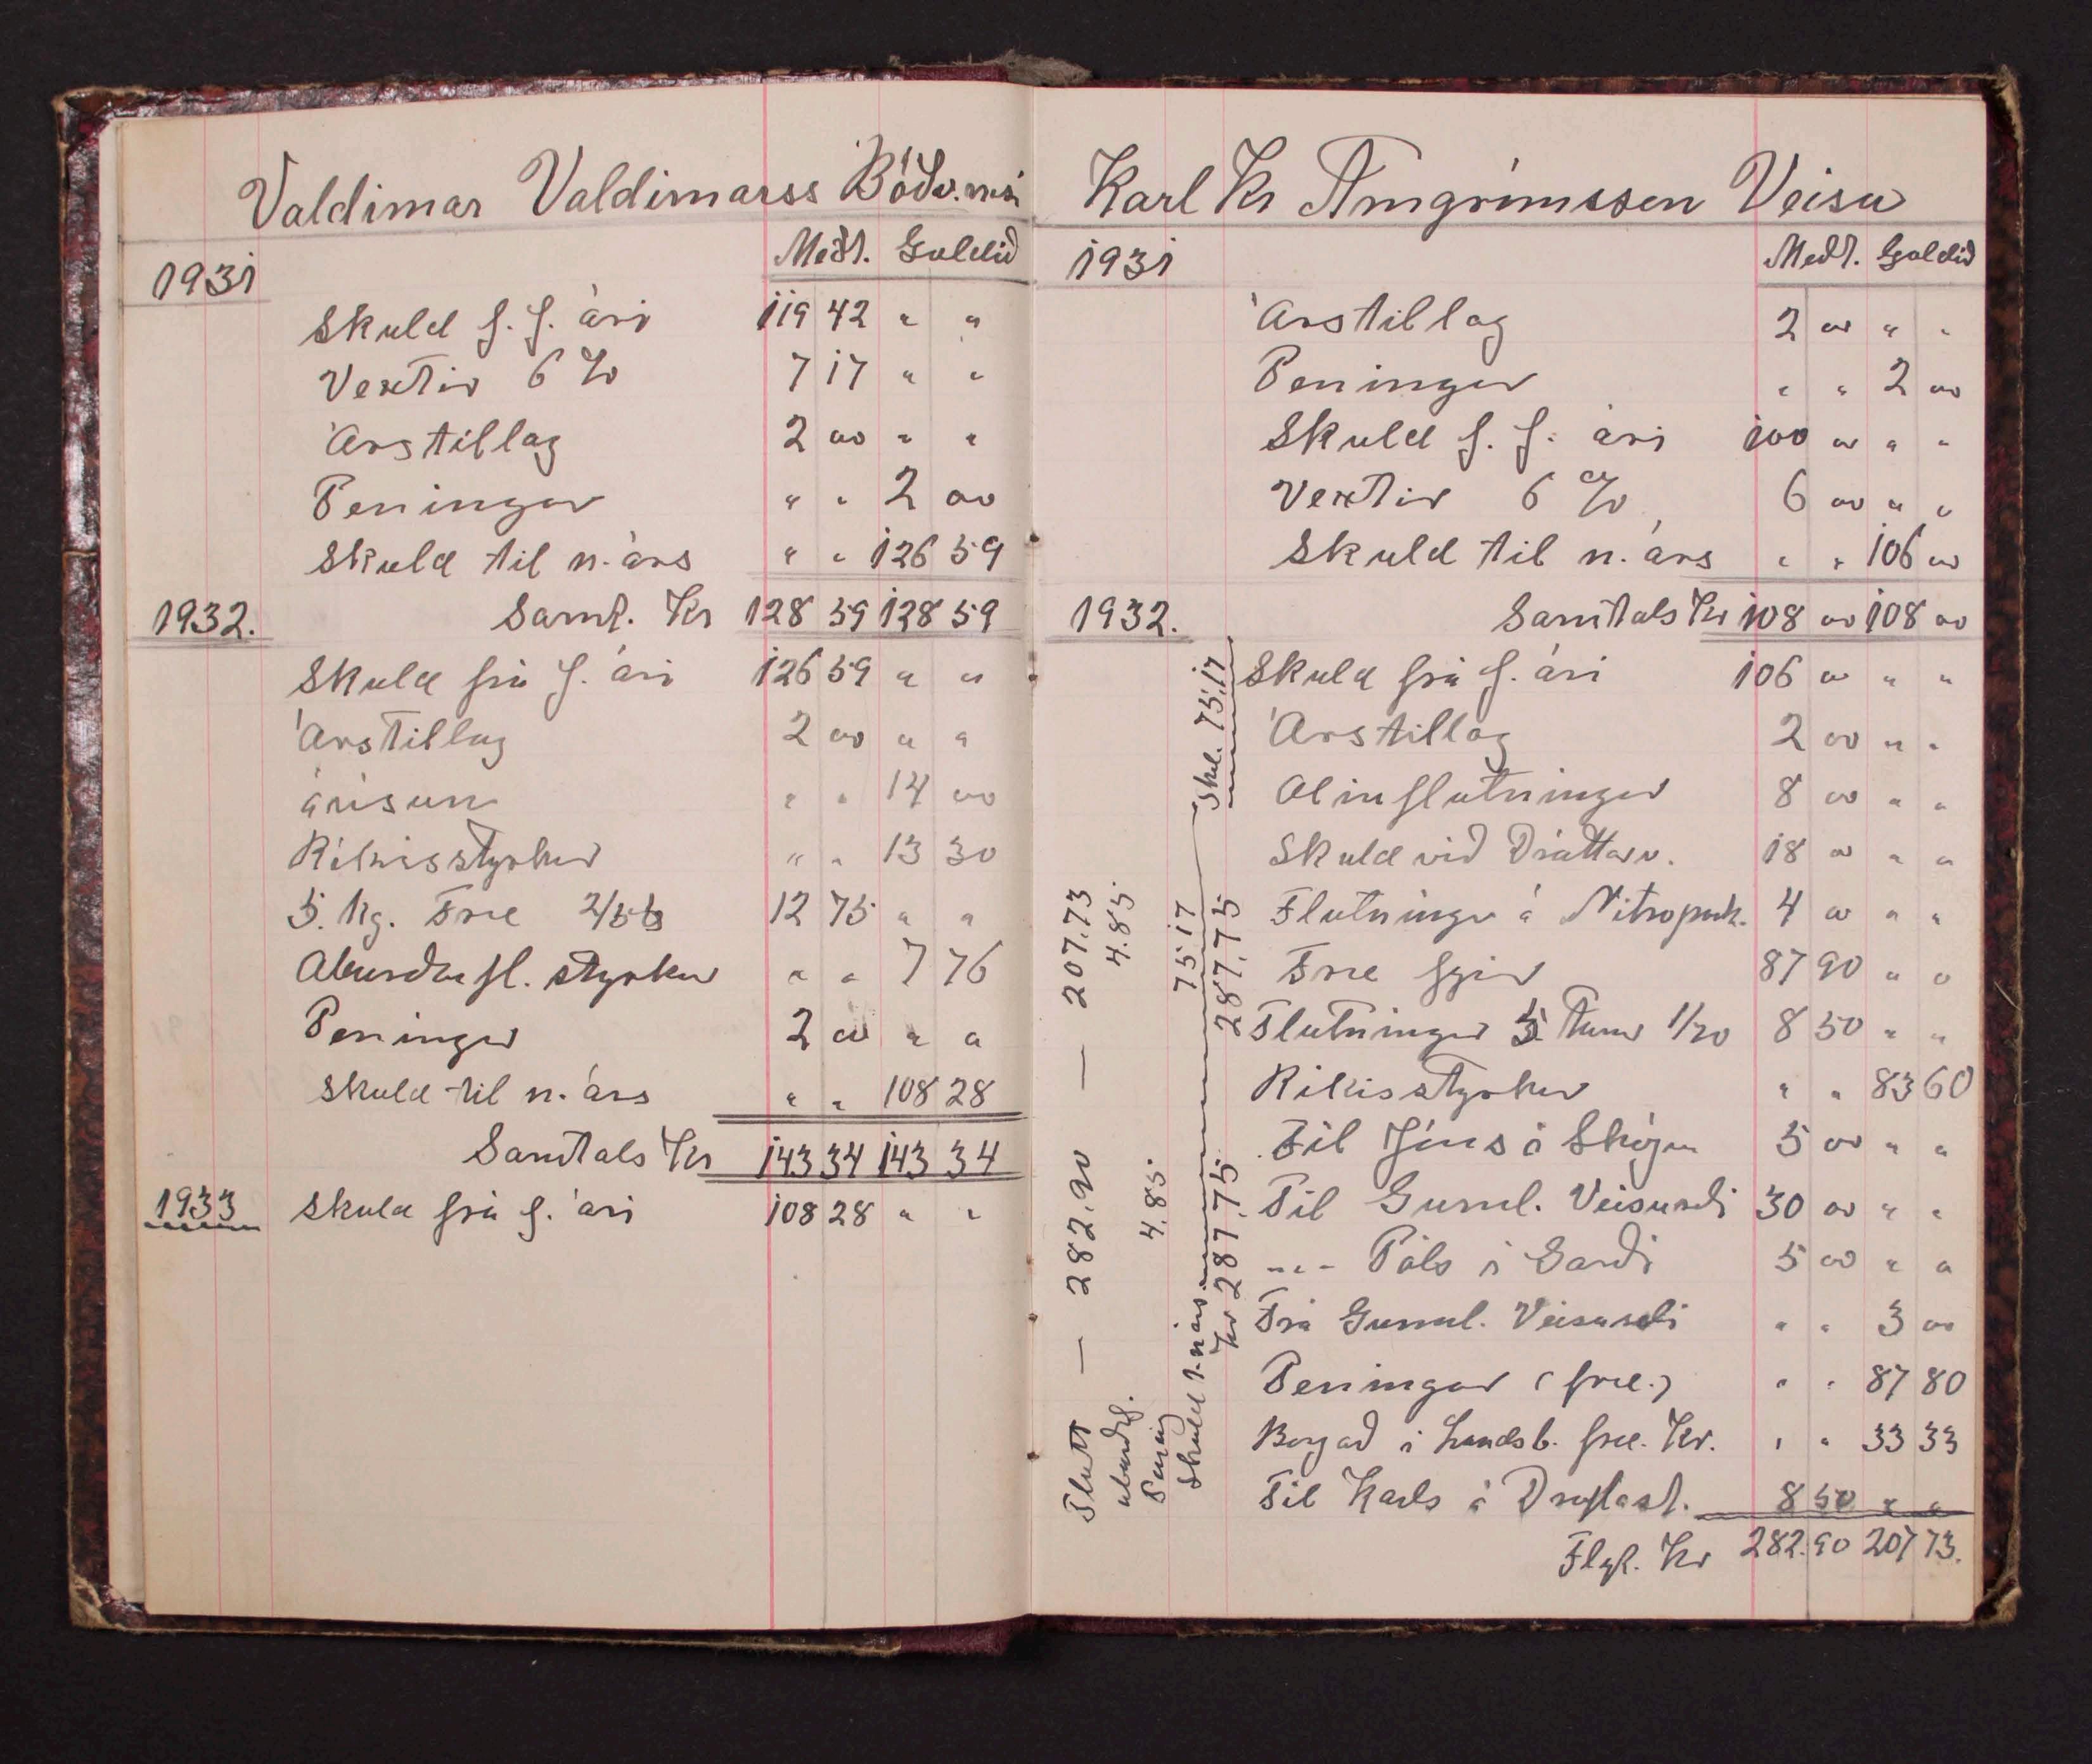 Valdimar Valdimarss Böðv.nesi
Medt. Goldið
1931
Skuld f. f. ári 119 42 " "
Vextir 6 % 7 17 " "
Árstillag 2 00 " "
Peningar " " 2 00
Skuld til n. árs " " 126 59
1932. Samt. Kr 128 59 128 59
Skuld frá f. ári 126 59 " "
Árstillag 2 00 " "
" " 14 00
Ríkisstyrkur " " 13 30
5. kg. Fræ 2/55 12 75 " "
Aburdarfl. styrkur " " 7 76
Peningar 2 00 " "
Skuld til n. árs " " 108 28
Samtals Kr 143 34 143 34
1933 Skuld frá f. ári 108 28 " "
Karl Kr Arngrímsson Veisu
1931 Medt. Goldið
Árstillag 2 00 " "
Peningar " " 2 00
Skuld f. f. ári 100 00 " "
Vextir 6 % 6 00 " "
Skuld til n. árs " " 106 00
1932. Samtals Kr 108 00 108 00
Skuld frá f. ári 106 00 " "
Árstillag 2 00 " "
Álinflutningur 8 00 " "
Skuld við Dráttarv. 18 00 " "
Flutningur á Nitroposk. 4 00 " "
Fræ fyrir 87 90 " "
Flutningur 5 Tunnur 1/70 8 50 " "
Ríkisstyrkur " " 83 60
Til Jóns á Skógum 5 00 " "
Til Gunnl. Veisuseli 30 00 " "
-"- Páls í Garði 5 00 " "
Frá Gunnl. Veisuseli " " 3 00
Peningar (fræ.) " " 87 80
Borgað í Landsb. fræ. Kr. " " 33 33
Til Karls á Draflast. 8 50 " "
Flyt. Kr 282.90 207 73.
Flutt — 282.90 — 207.73
aburdrf. 4.85
Pening 4.85
Skuld t. n árs 75 17
Kr 287.75 287.75
Skul. 75.17